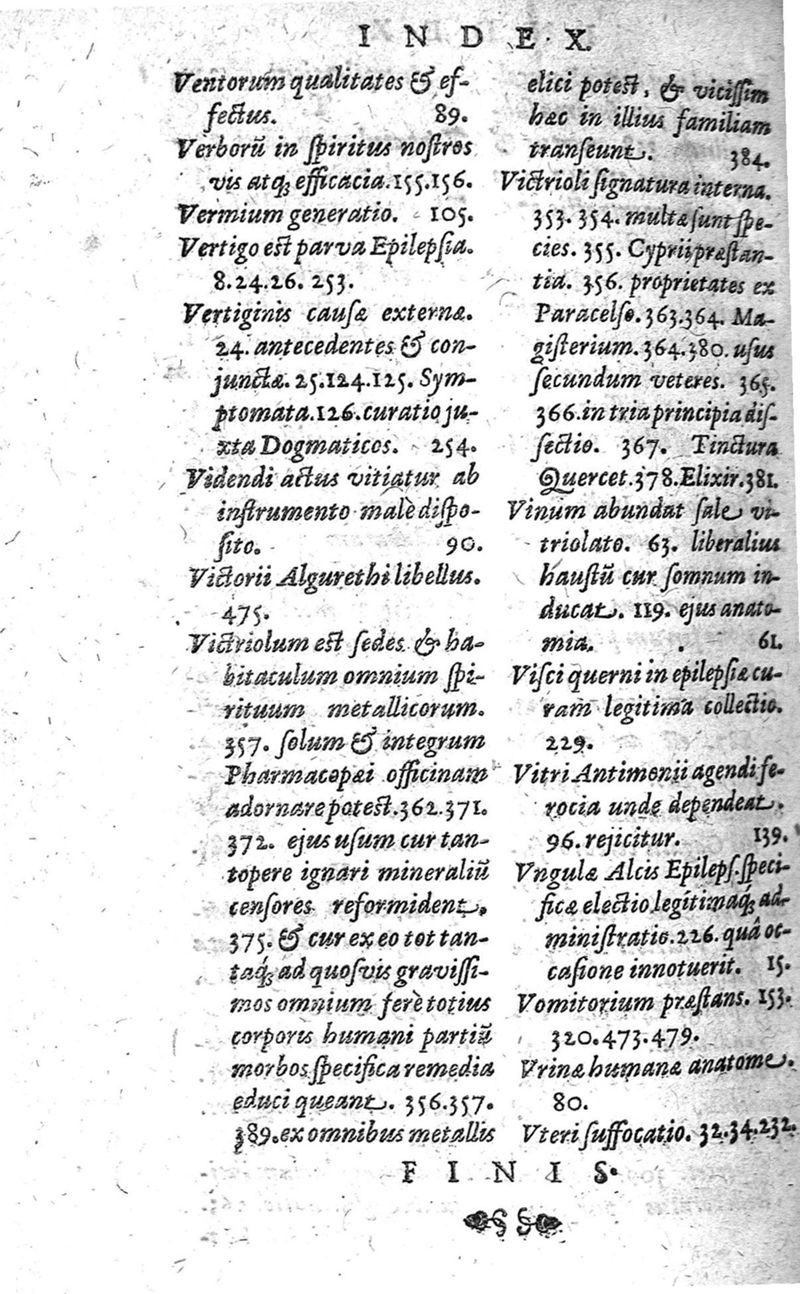 INDEX.
Ventorum qualitates & ef-
fectus. 89.
Verborũ in ſpiritus noſtros
vis atq; efficacia. 155. 156.
Vermium generatio. 105.
Vertigo est parva Epilepſia.
8. 24. 26. 253.
Vertiginis cauſæ externæ.
24. antecedentes & con-
junctæ. 25. 124. 125. Sym-
ptomata. 126. curatio ju-
xta Dogmaticos. 254.
Videndi actus vitiatur ab
inſtrumento malè diſpo-
ſito. 90.
Victorii Algurethi libellus.
475.
Victriolum est ſedes & ha-
bitaculum omnium ſpi-
rituum metallicorum.
357. ſolum & integrum
Pharmacopæi officinam
adornare potest. 362. 371.
372. ejus uſum cur tan-
topere ignari mineraliũ
cenſores reformident.
375. & cur ex eo tot tan-
taq; ad quoſvis graviſſi-
mos omnium ferè totius
corporis humani partiũ
morbos ſpecifica remedia
educi queant. 356. 357.
389. ex omnibus metallis
elici potest, & viciſſim
hæc in illius familiam
tranſeunt. 384.
Victrioli ſignatura interna.
353. 354. multæ ſunt ſpe-
cies. 355. Cyprii præſtan-
tia. 356. proprietates ex
Paracelſo. 363. 364. Ma-
giſterium. 364. 380. uſus
ſecundum veteres. 365.
366. in tria principia diſ-
ſectio. 367. Tinctura
Quercet. 378. Elixir. 381.
Vinum abundat ſale vi-
triolato. 63. liberalius
hauſtũ cur ſomnum in-
ducat. 119. ejus anato-
mia. 61.
Viſci querni in epilepſiæ cu-
ram legitima collectio.
229.
Vitri Antimonii agendi fe-
rocia unde dependeat.
96. rejicitur. 139.
Vngulæ Alcis Epilepſ. ſpeci-
ficæ electio legitimaq; ad-
miniſtratio. 226. quâ oc-
caſione innotuerit. 15.
Vomitorium præſtans. 153.
320. 473. 479.
Vrinæ humanæ anatome.
80.
Vteri ſuffocatio. 32. 34. 232.
FINIS.